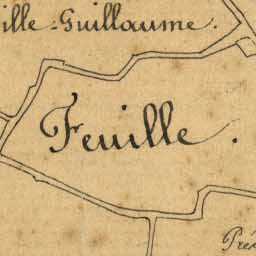 ille-Guillaume.
Feuille.
Pré